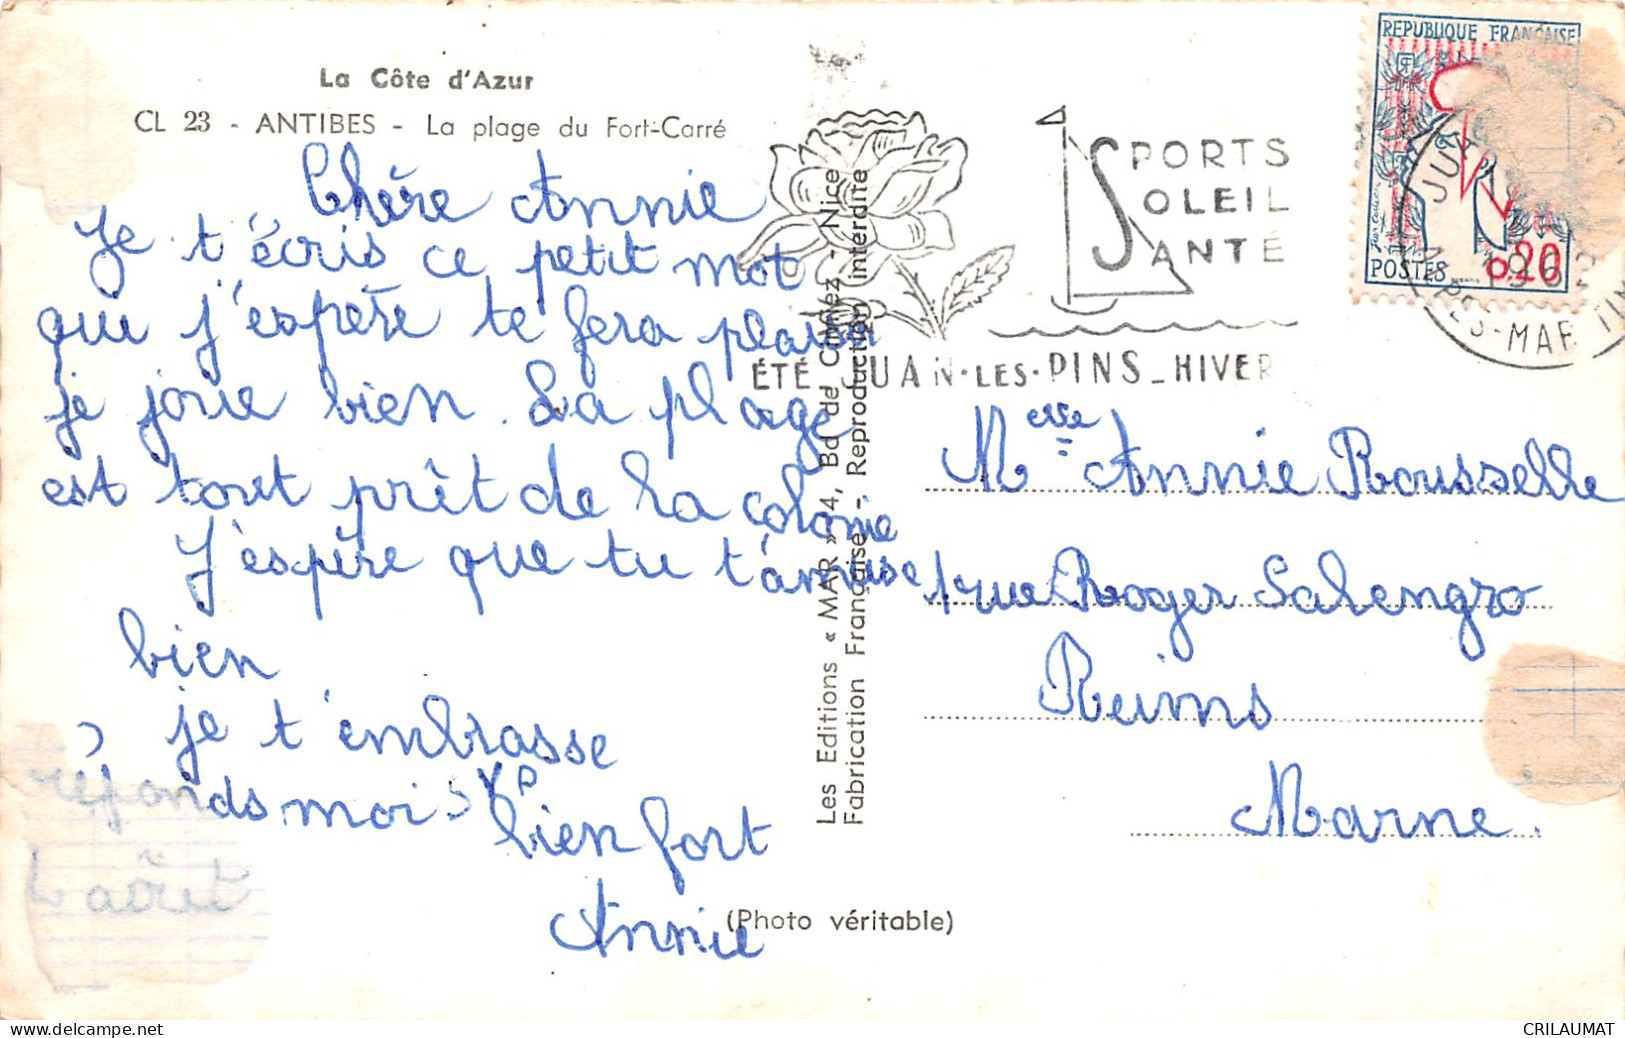 La Côte d'Azur
CL 23 - ANTIBES - La plage du Fort-Carré
Chère Annie
Je t'écris ce petit mot
qui j'espère te fera plaisir
je joue bien. La plage
est tout prêt de la colonie
J'espère que tu t'amuse
bien
je t'embrasse
réponds moi SVP
bien fort
Annie
(Photo véritable)
Les Editions « MAR » 14, Bd de Cimiez - Nice
Fabrication Française - Reproduction interdite
SPORTS
SOLEIL
SANTÉ
ÉTÉ JUAN-LES-PINS_HIVER
REPUBLIQUE FRANÇAISE
POSTES 0,20
JUAN
1962
ALPES-MARITIMES
Melle Annie Rousselle
1 rue Roger Salengro
Reims
Marne.
CRILAUMAT
www.delcampe.net